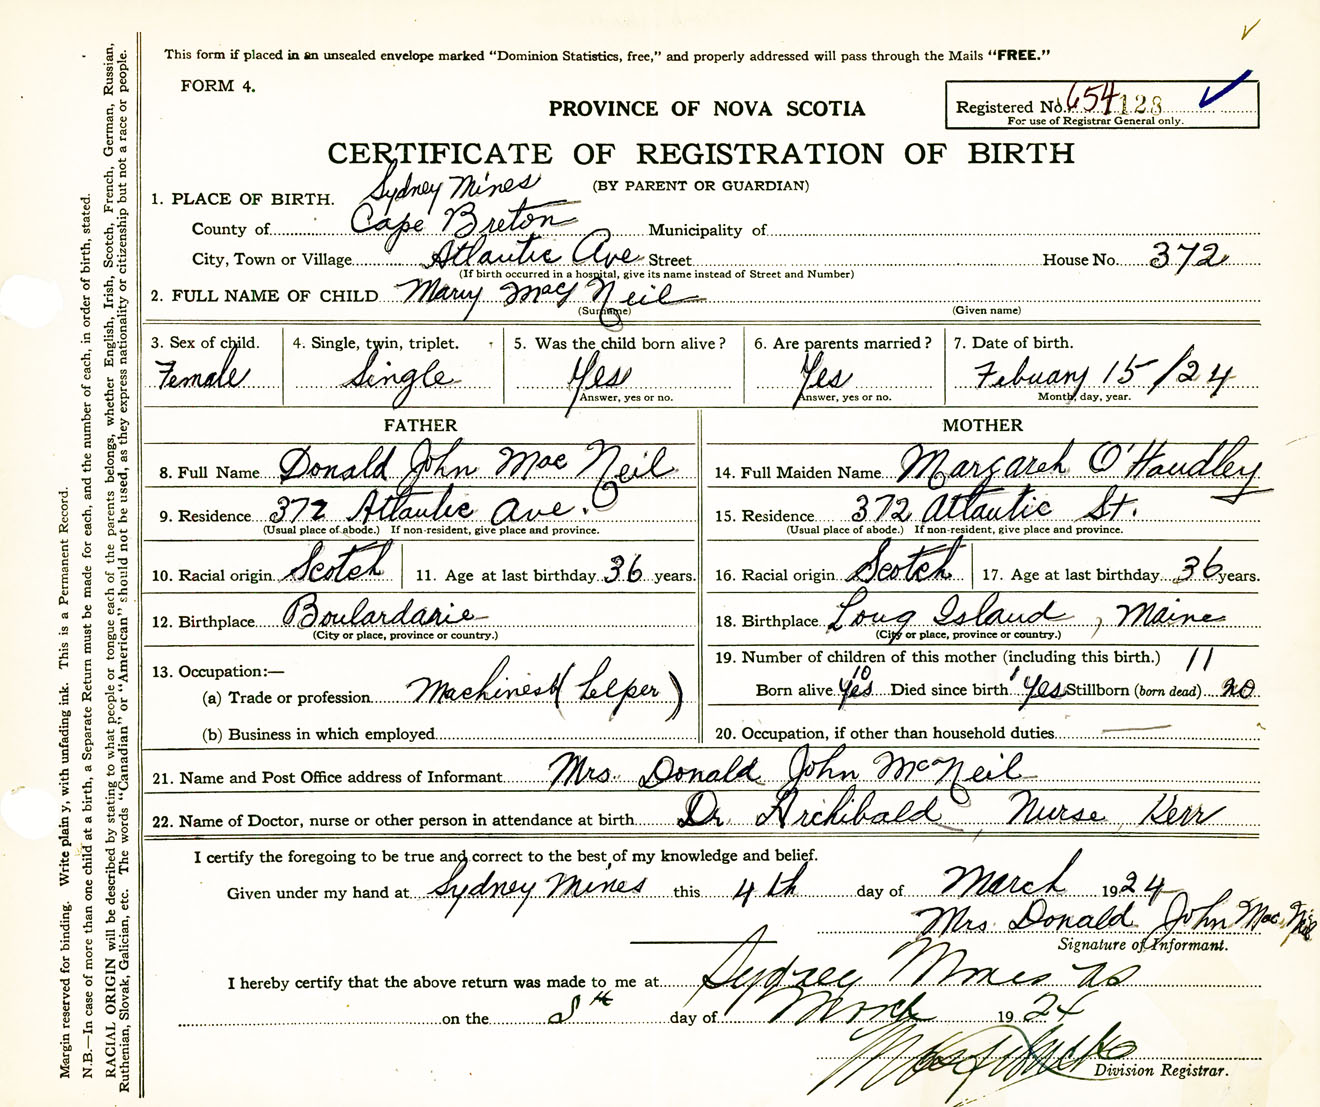 This form if placed in an unsealed envelope marked "Dominion Statistics, free," and properly addressed will pass through the Mails "FREE."
FORM 4.
PROVINCE OF NOVA SCOTIA
Registered No. 654128
For use of Registrar General only.
CERTIFICATE OF REGISTRATION OF BIRTH
(BY PARENT OR GUARDIAN)
1. PLACE OF BIRTH. Sydney Mines
County of Cape Breton Municipality of
City, Town or Village Atlantic Ave Street House No. 372
(If birth occurred in a hospital, give its name instead of Street and Number)
2. FULL NAME OF CHILD Mary MacNeil
(Surname) (Given name)
3. Sex of child. 4. Single, twin, triplet. 5. Was the child born alive? 6. Are parents married? 7. Date of birth.
Female Single Yes Yes Febuary 15/24
Answer, yes or no. Answer, yes or no. Month, day, year.
FATHER MOTHER
8. Full Name Donald John MacNeil 14. Full Maiden Name Margareh O'Handley
9. Residence 372 Atlantic Ave. 15. Residence 372 Atlantic St.
(Usual place of abode.) If non-resident, give place and province. (Usual place of abode.) If non-resident, give place and province.
10. Racial origin Scotch 11. Age at last birthday 36 years. 16. Racial origin Scotch 17. Age at last birthday 36 years.
12. Birthplace Boulardarie 18. Birthplace Long Island, Maine
(City or place, province or country.) (City or place, province or country.)
13. Occupation:— 19. Number of children of this mother (including this birth.) 11
(a) Trade or profession Machinest (helper) Born alive 10 yes Died since birth 1 yes Stillborn (born dead) no
(b) Business in which employed 20. Occupation, if other than household duties
21. Name and Post Office address of Informant Mrs. Donald John McNeil
22. Name of Doctor, nurse or other person in attendance at birth Dr Archibald, Nurse Kerr
I certify the foregoing to be true and correct to the best of my knowledge and belief.
Given under my hand at Sydney Mines this 4th day of March 1924
Mrs. Donald John MacNeil
Signature of Informant.
I hereby certify that the above return was made to me at Sydney Mines NS
on the 5th day of March 1924
Division Registrar.
Margin reserved for binding. Write plainly, with unfading ink. This is a Permanent Record.
N.B.—In case of more than one child at a birth, a Separate Return must be made for each, and the number of each, in order of birth, stated.
RACIAL ORIGIN will be described by stating to what people or tongue each of the parents belongs, whether English, Irish, Scotch, French, German, Russian,
Ruthenian, Slovak, Galician, etc. The words "Canadian" or "American" should not be used, as they express nationality or citizenship but not a race or people.